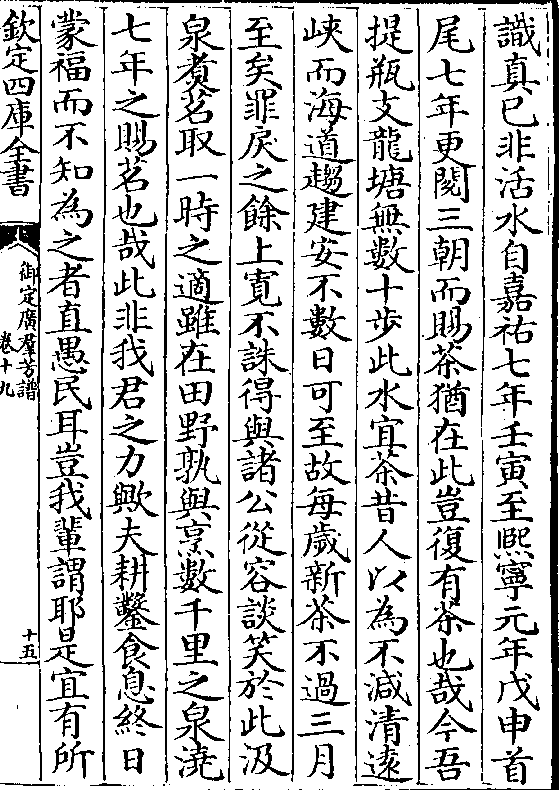 識真已非活水自嘉祐七年壬寅至熈寧元年戊申首
尾七年更閱三朝而賜茶猶在此豈復有茶也哉今吾
提瓶支龍塘無數十歩此水宜茶昔人以為不減清逺
峽而海道趨建安不數日可至故每歲新茶不過三月
至矣罪戾之餘上寛不誅得與諸公從容談笑於此汲
泉煑茗取一時之適雖在田野孰與烹數千里之泉澆
七年之賜茗也哉此非我君之力歟夫耕鑿食息終日
蒙福而不知為之者直愚民耳豈我輩謂耶是宜有所
欽定四庫全書
御定廣羣芳譜
卷十九
十五